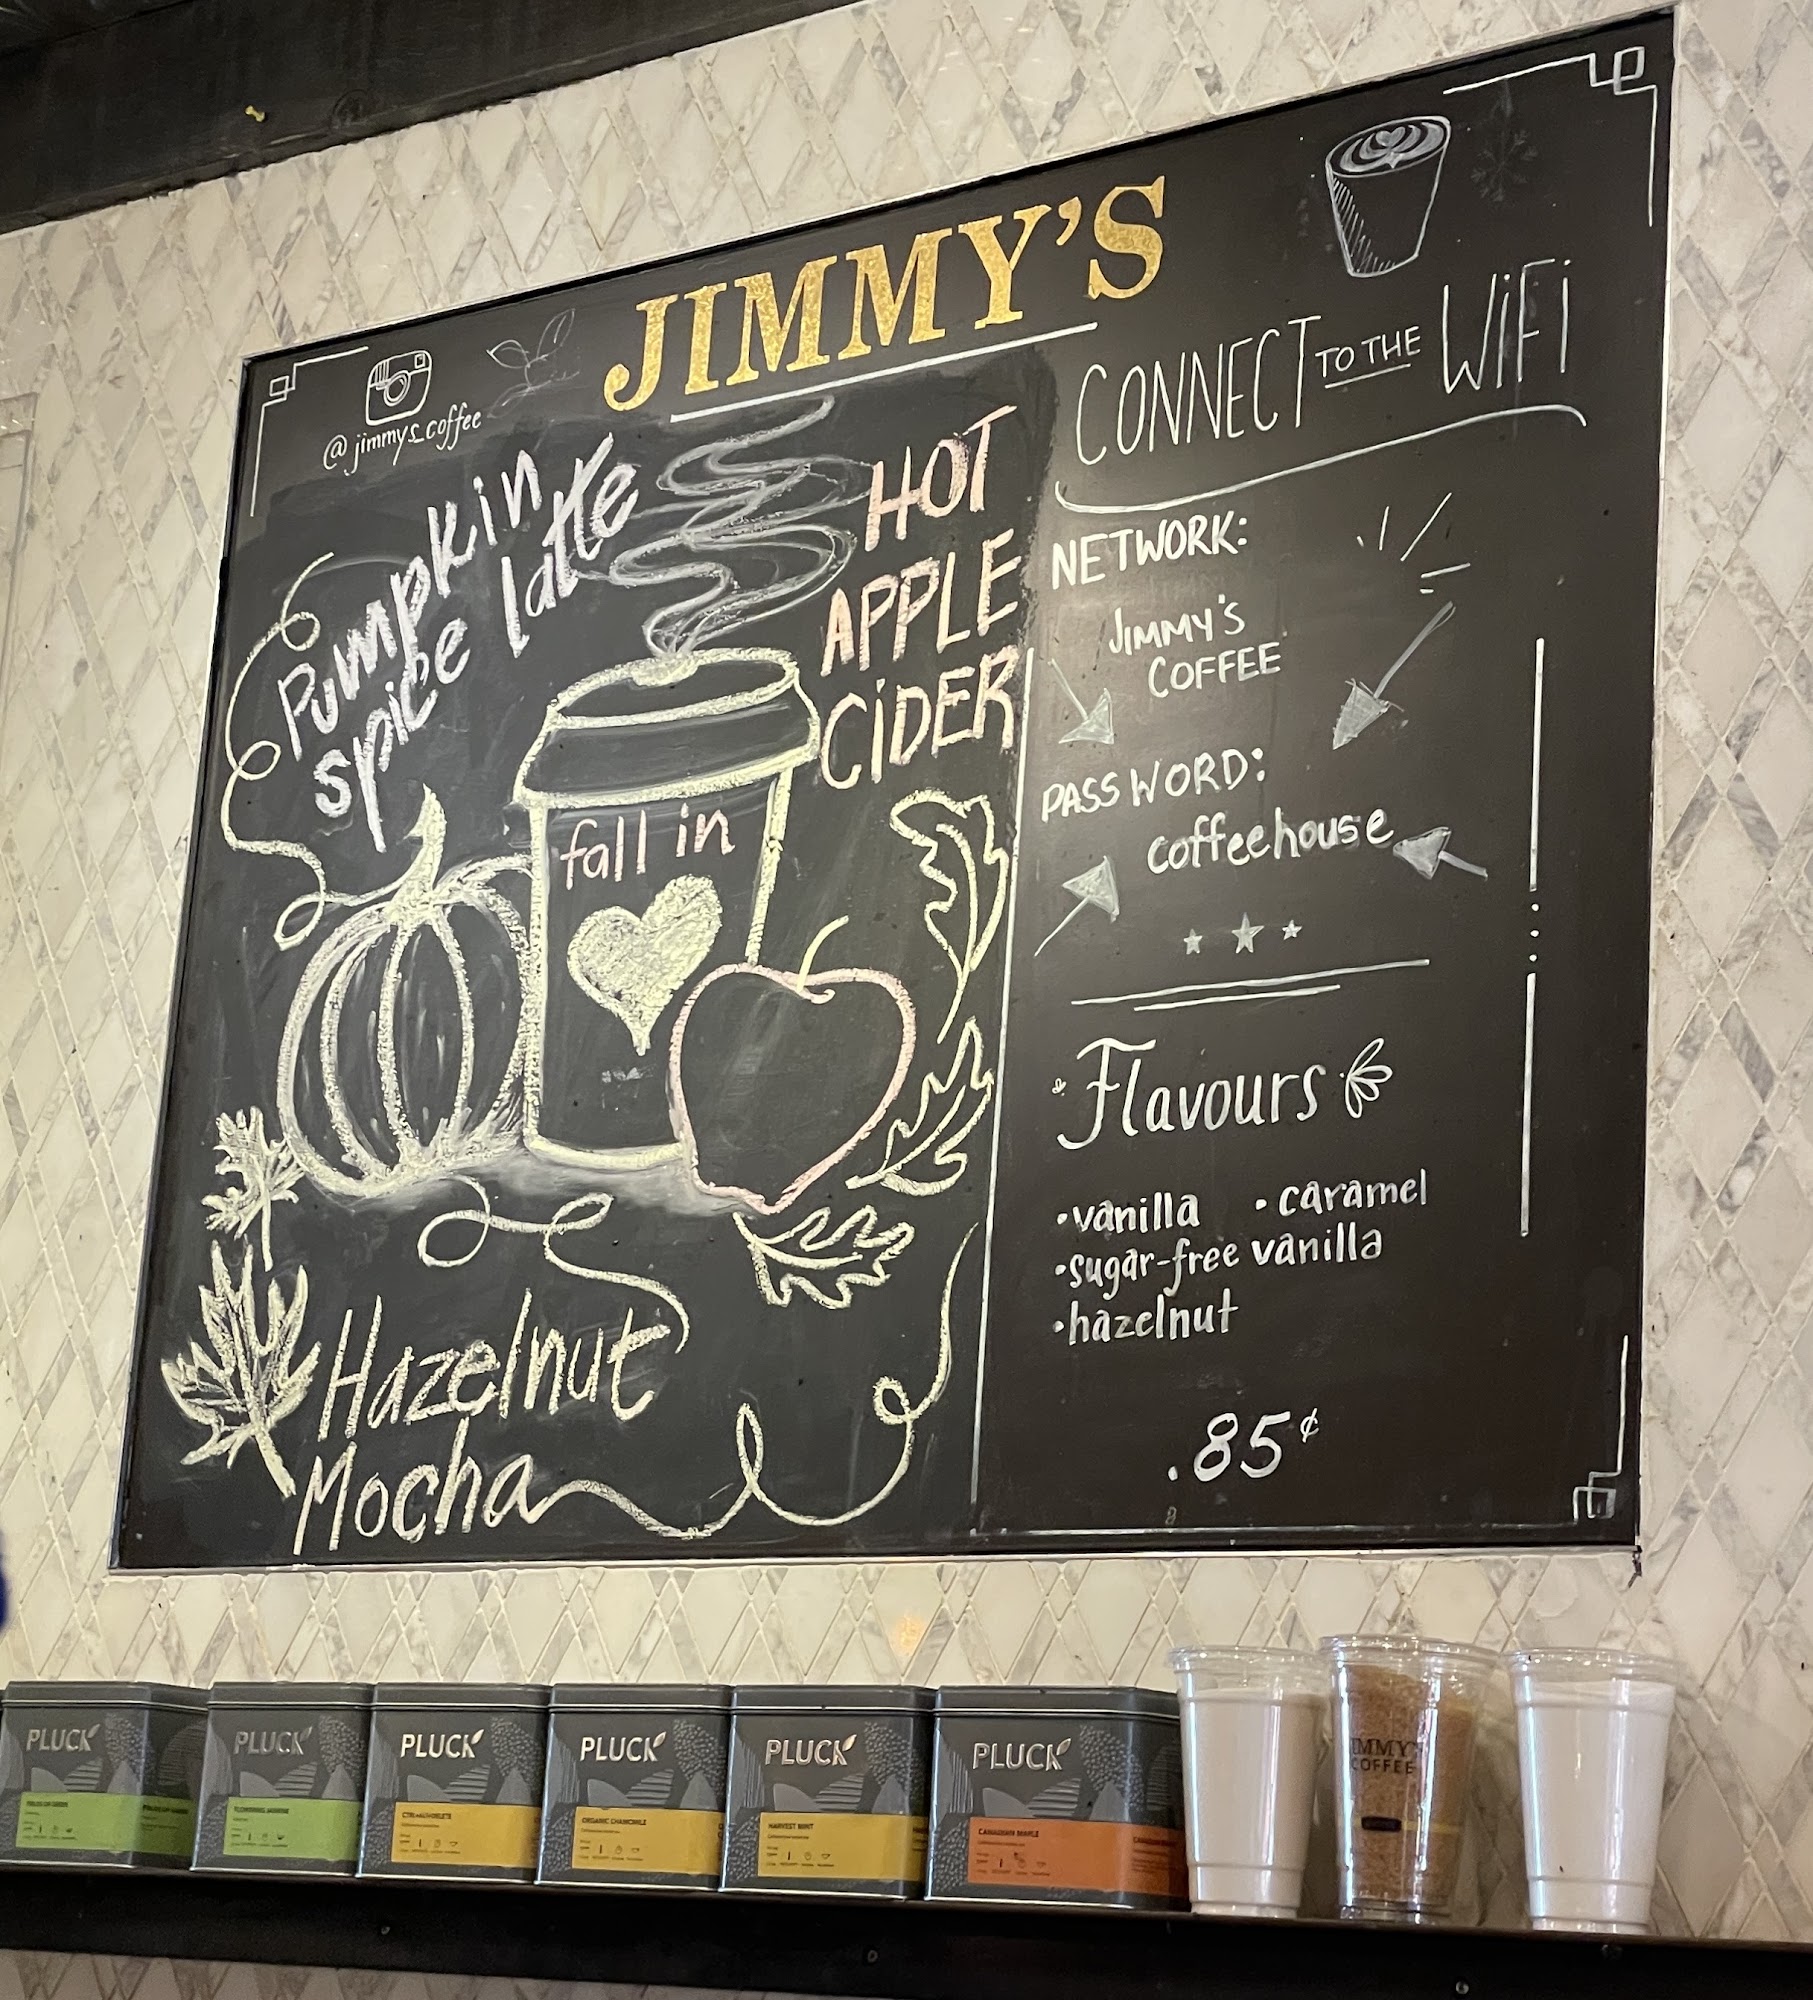 JIMMY'S
@jimmys_coffee
Pumpkin
spice latte
HOT
APPLE
CIDER
fall in
Hazelnut
Mocha
CONNECT TO THE WiFi
NETWORK:
JIMMY'S
COFFEE
PASSWORD:
coffeehouse
Flavours
•vanilla •caramel
•sugar-free vanilla
•hazelnut
.85¢
PLUCK
PLUCK
PLUCK
PLUCK
PLUCK
PLUCK
ORGANIC CHAMOMILE
HARVEST MINT
JIMMY'S
COFFEE